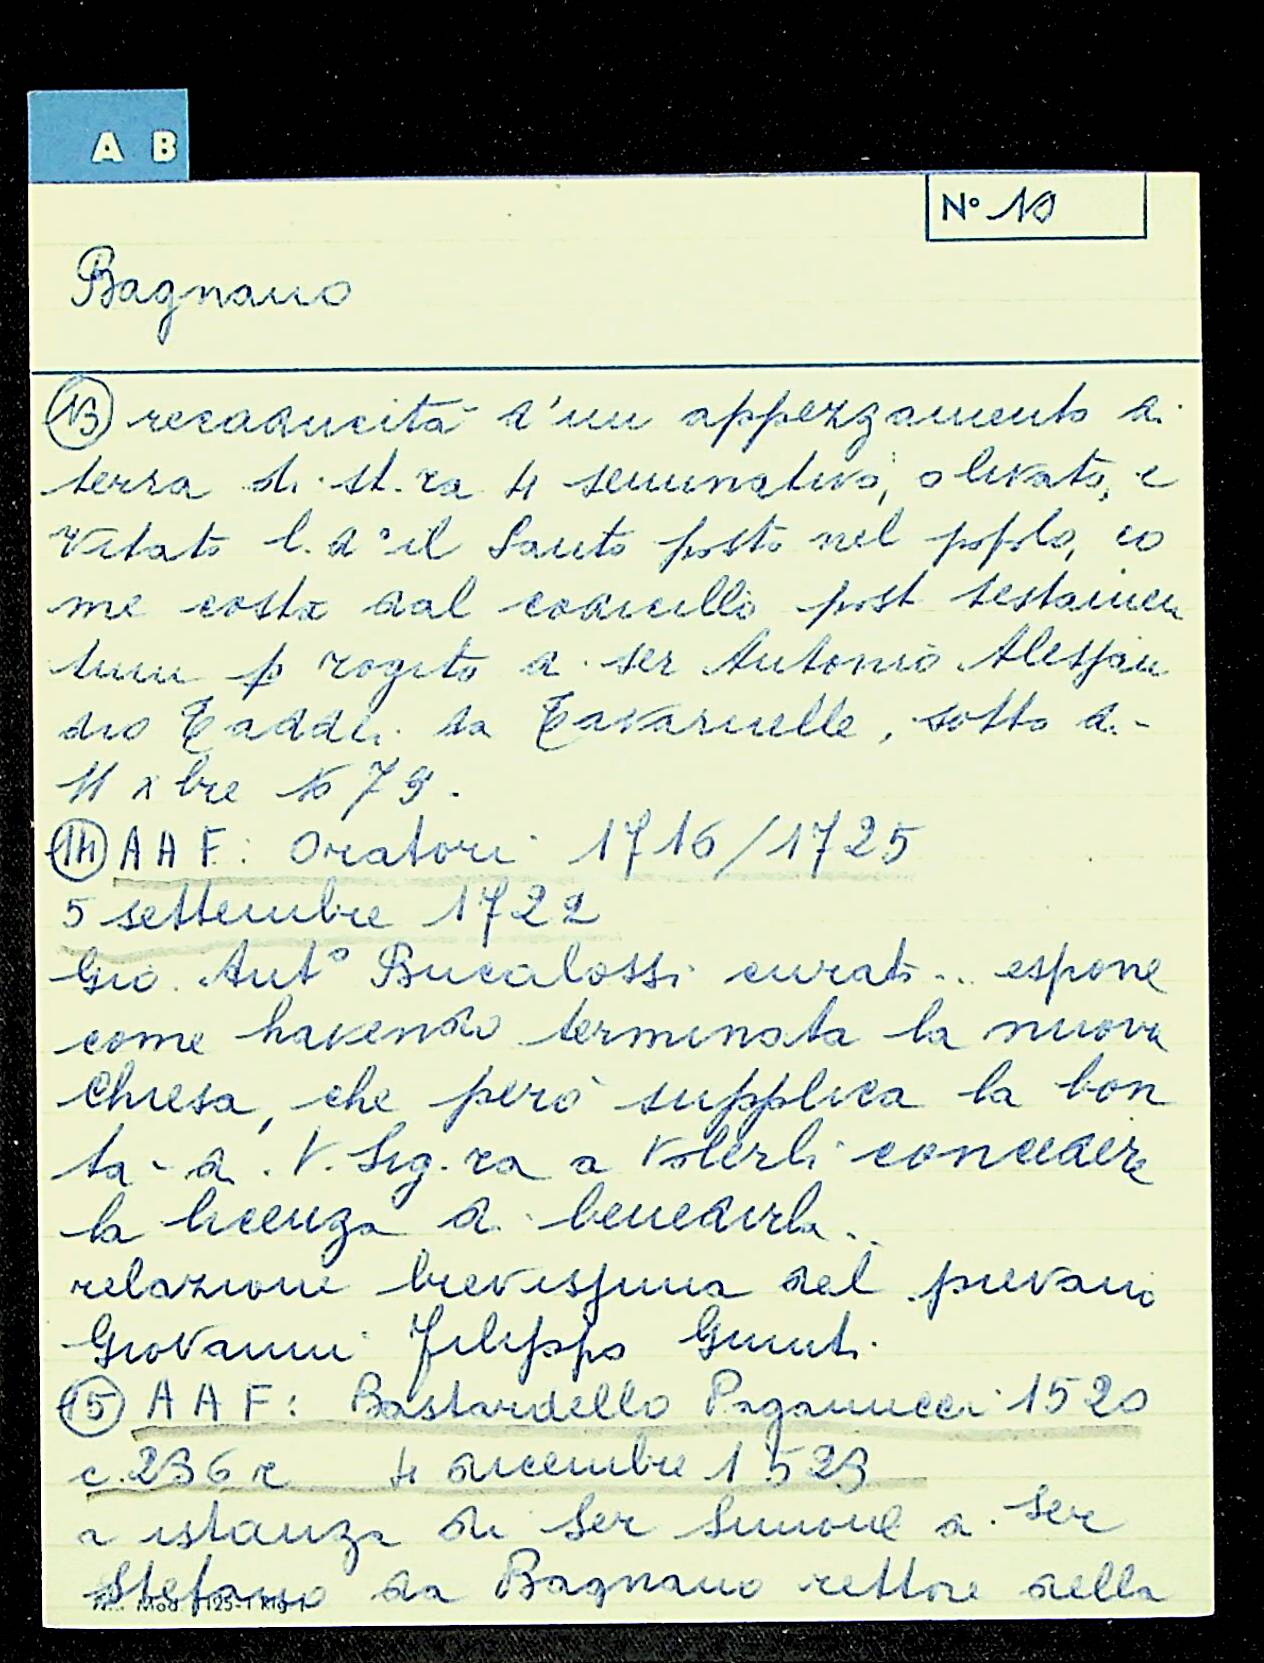 A B
N° 10
Bagnano
13 recaducità d'un appezzamento di
terra di st. ra 4 seminativo, olivato, e
vitato l. d° il Santo posto nel popolo, co
me costa dal codicillo post testamen
tum p rogito di ser Antonio Alessan
dro Taddei da Tavarnelle, sotto di -
11 xbre 1679.
14 AAF: Oratori 1716/1725
5 settembre 1722
Gio. Ant° Bucalossi curato .. espone
come havendo terminata la nuova
Chiesa, che però supplica la bon
tà di V. Sig. ra a volerli concedere
la licenza di benedirla ..
relazione brevissima del pievano
Giovanni Filippo Giunti.
15 AAF: Bastardello Paganucci 1520
c. 236 r 4 dicembre 1523
a istanza di Ser Simone di ser
Stefano da Bagnano rettore della